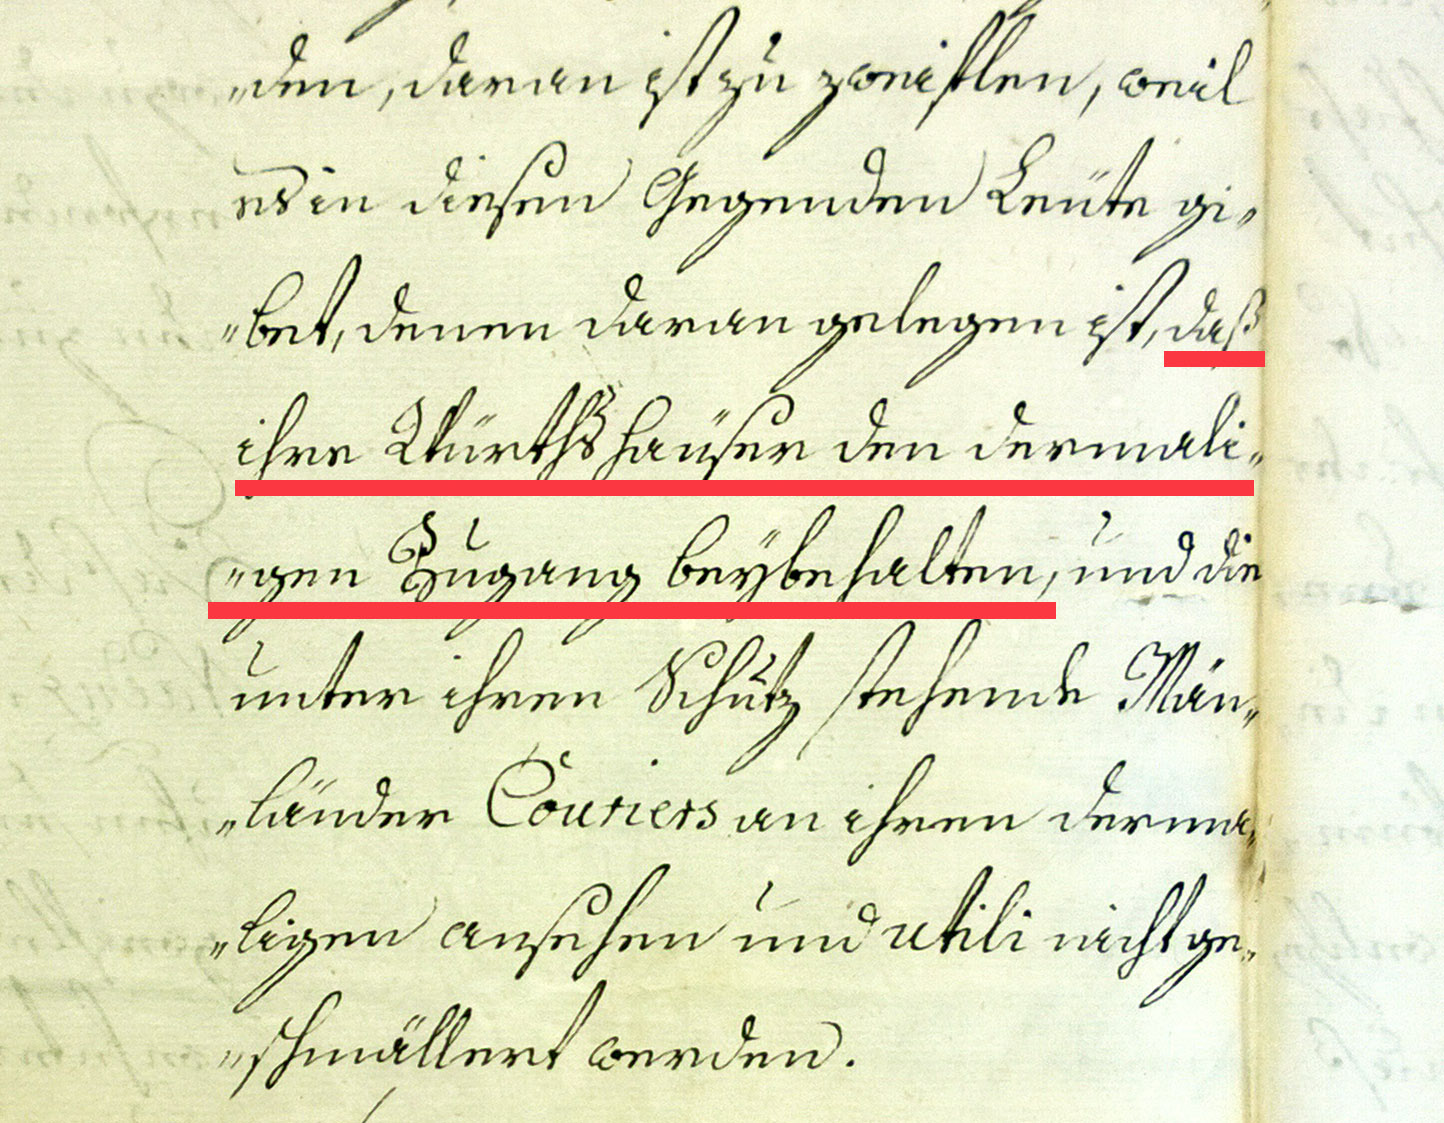 „den, daran ist zu zweiflen, weil
es in diesen Gegenden Leüte gi„
„bet, denen daran gelegen ist, daß
ihre Würthshaüser den dermali„
„gen Zugang beybehalten, und die
unter ihren Schutz stehende Män„
„länder Couriers an ihren derma„
„ligen ansehen und utili nicht ge„
„schmällert werden.